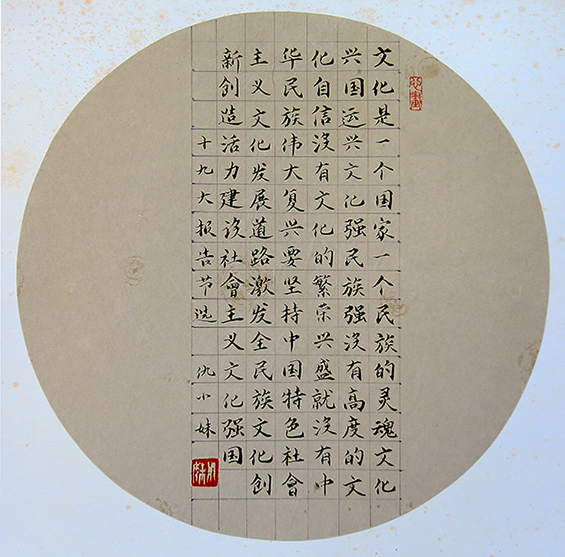 文化是一个国家一个民族的灵魂文化
兴国运兴文化强民族强没有高度的文
化自信没有文化的繁荣兴盛就没有中
华民族伟大复兴要坚持中国特色社會
主义文化发展道路激发全民族文化创
新创造活力建设社會主义文化强国
十九大报告节选 仇小妹